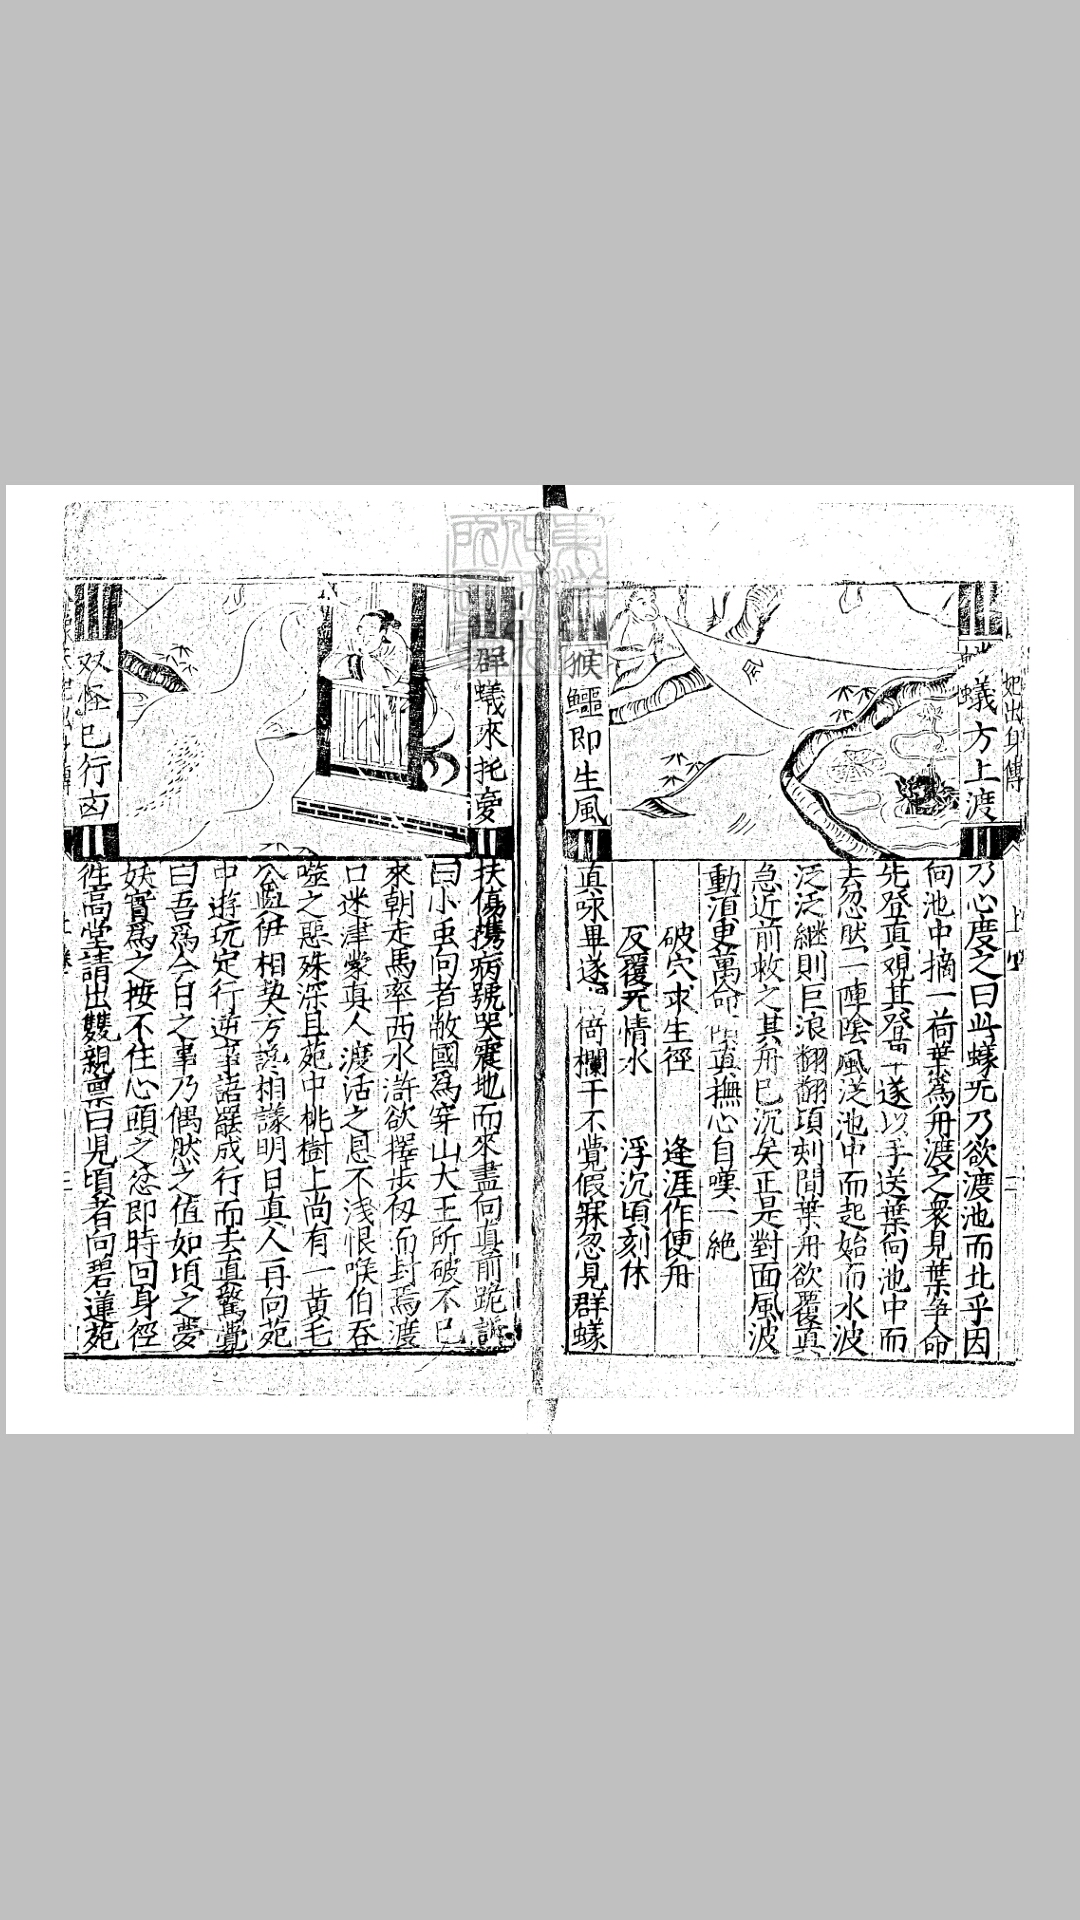 妃出身傳
上
蟻方上渡
猴鱷即生風
風
乃心度之曰此蟻无乃欲渡池而北乎因
向池中摘一荷葉爲舟渡之衆見葉争命
先登真覌其登
遂以手送葉向池中而
去忽然一陣陰風從池中而起始而水波
泛泛継則巨浪翻翻頃刻間葉舟欲覆真
急近前救之其舟已沉矣正是對面風波
動湏更萬命
真撫心自嘆一絶
破穴求生徑 逢涯作便舟
反覆无情水 浮沉頃刻休
真咏畢遂
倚欄干不覺假寐忽見群蟻
群蟻來托夢
双怪已行凶
扶傷携病號哭震地而來盡向真前跪訴
曰小虫向者敝國爲穿山大王所破不已
來朝走馬率西水滸欲擇步匆而封焉渡
口迷津蒙真人渡活之恩不浅恨喉伯吞
噬之惡殊深且苑中桃樹上尚有一黄毛
公監伊相契方
相議明日真人再向苑
中遊玩定行逆事諾罷成行而去真驚覺
曰吾爲今日之事乃偶然之值如頃之夢
妖實爲之按不住心頭之忿即時回身徑
徃高堂請出雙親禀曰児頃者向碧蓮苑